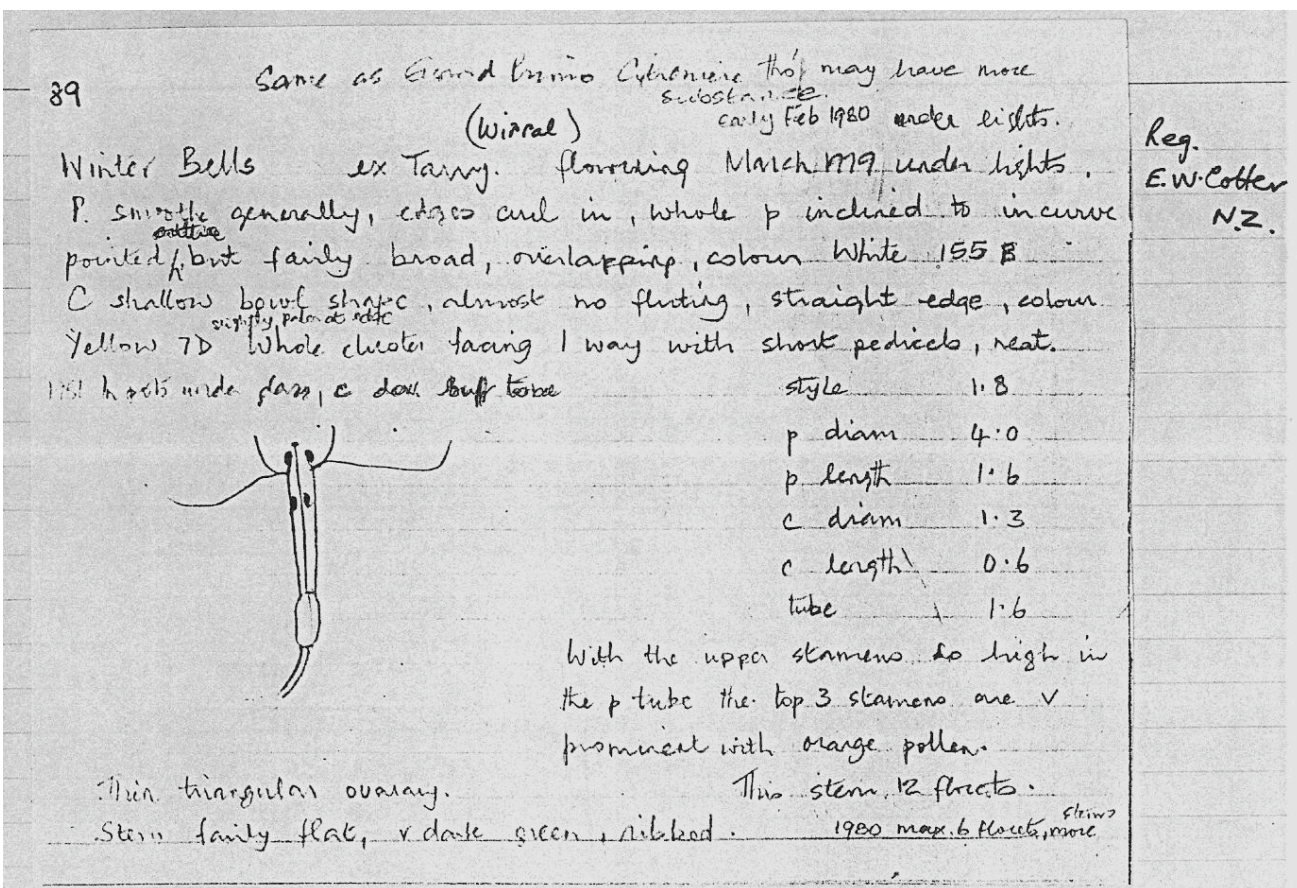 89
Same as Grand Primo Citroniere tho' may have more
substance.
early Feb 1980 under lights.
(Wirral)
Winter Bells ex Tarry. flowering March 1979 under lights.
Reg.
E.W.Cotter
N.Z.
P. smooth generally, edges curl in, whole p inclined to incurve
pointed, but fairly broad, overlapping, colour White 155 B
C shallow bowl shape, almost no fluting, straight edge, colour
slightly paler at edge
Yellow 7D Whole cluster facing 1 way with short pedicels, neat.
1981 h pots under glass, c dark buff tone
style 1.8
p diam 4.0
p length 1.6
c diam 1.3
c length 0.6
tube 1.6
With the upper stamens so high in
the p tube the top 3 stamens are v
prominent with orange pollen.
Thin triangular ovarary.
This stem 12 florets.
Stem fairly flat, v dark green, ribbed.
1980 max. 6 florets, more stems